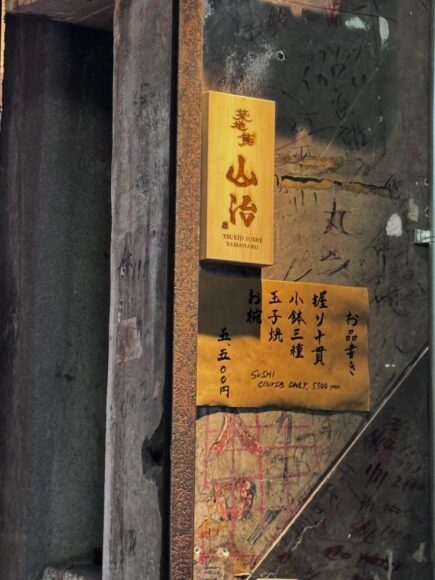 築地鮨
山治
TSUKIJI SUSHI
YAMAHARU
お品書き
握り十貫
小鉢三種
玉子焼
お椀
五、五〇〇円
SUSHI
COURSE ONLY, 5500 yen
丸